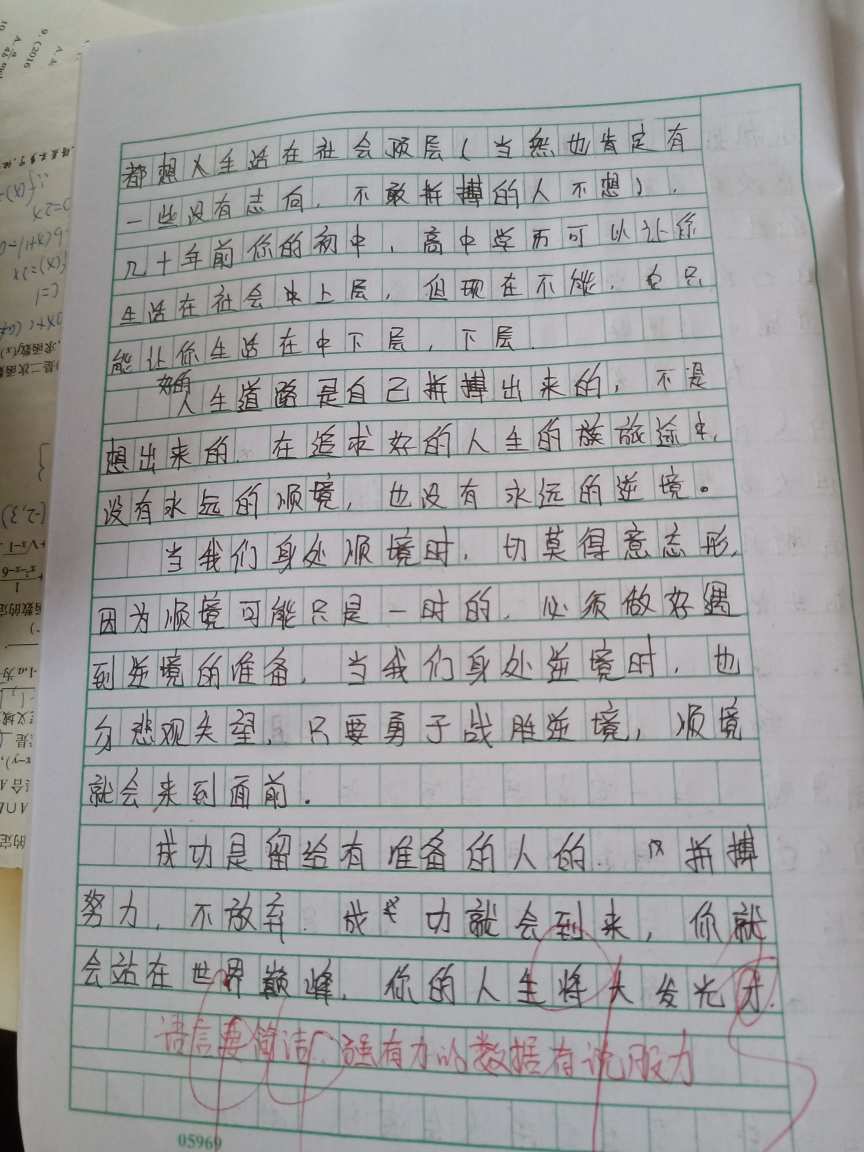 都想人生活在社会顶层（当然也肯定有
一些没有志向，不敢拼搏的人不想），
几十年前你的初中，高中学历可以让你
生活在社会中上层，但现在不能，它只
能让你生活在中下层，下层.
好的
人生道路是自己拼搏出来的，不是
想出来的.在追求好的人生的旅途中，
没有永远的顺境，也没有永远的逆境。
当我们身处顺境时.切莫得意忘形，
因为顺境可能只是一时的.必须做好遇
到逆境的准备.当我们身处逆境时，也
勿悲观失望.只要勇于战胜逆境，顺境
就会来到面前.
成功是留给有准备的人的.拼搏
努力，不放弃.成功就会到来，你就
会站在世界巅峰.你的人生将大发光牙.
语言要简洁，强有力的数据有说服力
05969